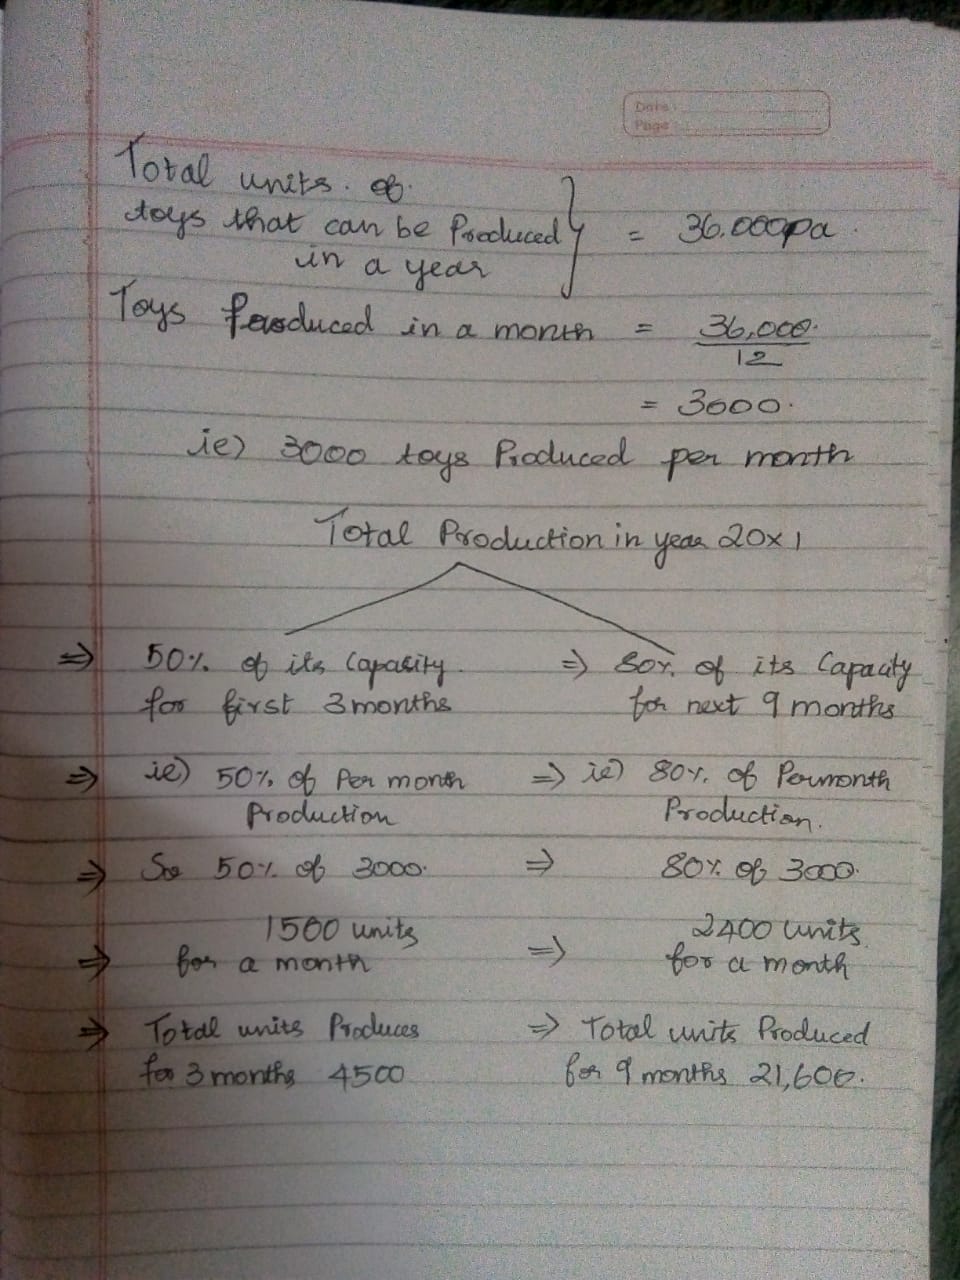 Date :
Page :
Total units. of.
toys that can be Produced
in a year
= 36.000pa.
Toys Produced in a month = 36,000.
12
= 3000.
ie) 3000 toys Produced per month
Total Production in year 20x1
⇒ 50% of its Capacity.
for first 3 months
⇒ ie) 50% of Per month
Production
⇒ So 50% of 3000.
1500 units
⇒ for a month
⇒ Total units Produces
for 3 months 4500
⇒ 80% of its Capacity
for next 9 months
⇒ ie) 80% of Per month
Production.
⇒ 80% of 3000.
2400 units
⇒ for a month
⇒ Total units Produced
for 9 months 21,600.